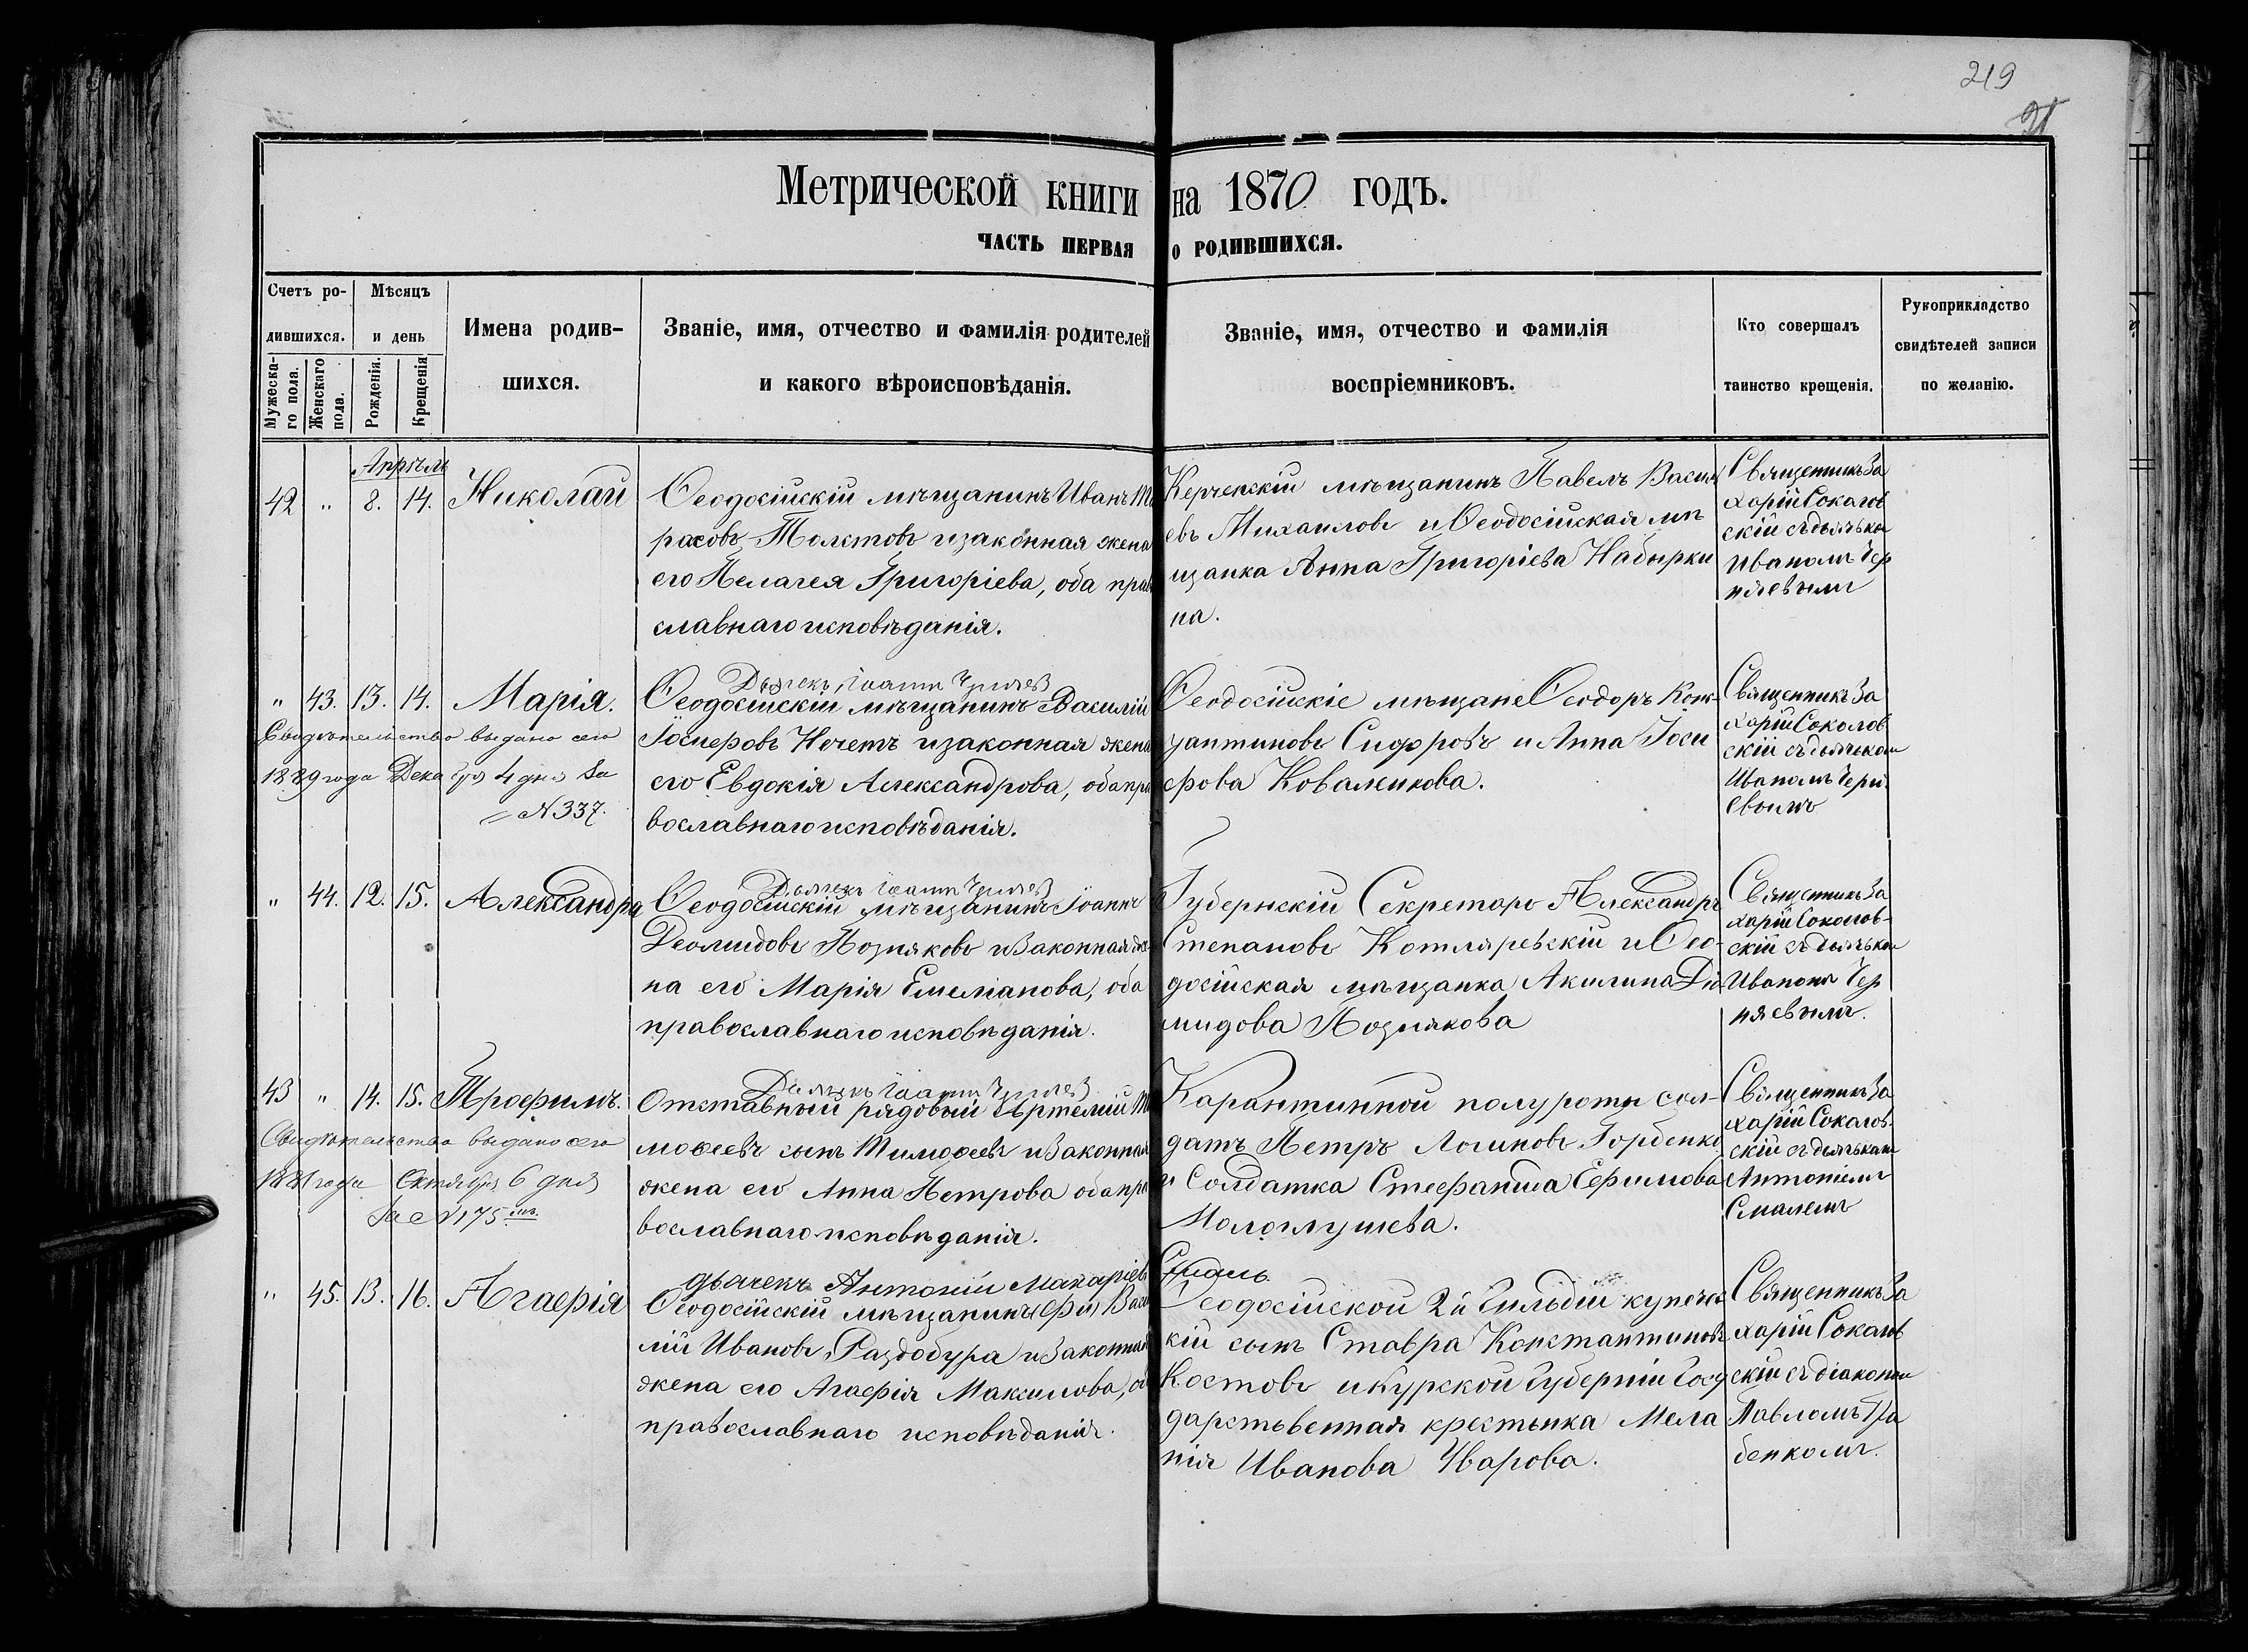 219
Метрической книги на 1870 годъ.
ЧАСТЬ ПЕРВАЯ о РОДИВШИХСЯ.
Счетъ ро-
дившихся.
Мужеска-
го пола.
Женскаго
пола.
Мѣсяцъ
и день
Рожденія.
Крещенія
Имена родив-
шихся.
Званіе, имя, отчество и фамилія родителей
и какого вѣроисповѣданія.
Званіе, имя, отчество и фамилія
воспріемниковъ.
Кто совершалъ
таинство крещенія.
Рукоприкладство
свидѣтелей записи
по желанію.
Апрѣль
42 " 8. 14. Николай
Ѳеодосійскій мѣщанинъ Иванъ
расовъ Толстовъ и законная жена
его Пелагея Григоріева, оба прав
славнаго исповѣданія.
Керченскій мѣщанинъ Павелъ Васил
евъ Михаиловъ и Ѳеодосійская мѣ
щанка Анна Григоріева Набырки
на.
Священникъ За
харій Соколов
скій съ дьячкомъ
Иваномъ Чер
няевымъ
Дьячекъ Іоаннъ Черняев
" 43. 13. 14. Марія.
Свидѣтельство выдано сего
1889 года Декабря 4 дня За
= N 337.
Ѳеодосійскій мѣщанинъ Василій
Іосиеровъ Нечетъ и законная жена
его Евдокія Александрова, оба пра
вославнаго исповѣданія.
Ѳеодосійскіе мѣщане Ѳеодоръ Конс
тантиновъ Сидоровъ и Анна Іоси
фова Коваленкова.
Священникъ За
харій Соколов
скій съ дьячкомъ
Иваномъ Черн
евымъ
Дьячекъ Іоаннъ Черняев
" 44. 12. 15. Александра
Ѳеодосійскій мѣщанинъ Іоаннъ
Деомидовъ Позняковъ и законная же
на его Марія Емеліанова, оба
православнаго исповѣданія.
Губернскій Секретарь Александръ
Степановъ Котляревскій и Ѳео-
досійская мѣщанка Акилина Діо
мидова Познякова
Священникъ За
харій Соколов-
скій съ дьячкомъ
Иваномъ Чер
няевымъ.
Дьячекъ Іоаннъ Черняев
43 " 14. 15. Трофимъ.
Свидѣтельство выдано сего
1881 года Октября 6 дня
За N 175
Отставный рядовый Артемій Ти
моѳеевъ сынъ Тимоѳеевъ и законная
жена его Анна Петрова оба пра
вославнаго исповѣданія.
Карантинной полуроты сол-
датъ Петръ Логиновъ Горбенко
и Солдатка Стефанида Ефимова
Мологлушева.
Священникъ За
харій Соколов-
скій съ дьячкомъ
Антоніемъ
Смалемъ
дьячекъ Антоній Макаріевъ Смаль
" 45. 13. 16. Агафія
Ѳеодосійскій мѣщанинъ Васи
лій Ивановъ Раздобура и законная
жена его Агафія Максимова, об
православнаго исповѣданія.
Ѳеодосійской 2й Гильдіи купечес
кій сынъ Ставра Константиновъ
Костовъ и Курской Губерніи Госу
дарственная крестьянка Мела
нія Иванова Уварова.
Священникъ За
харій Соколов
скій съ діакономъ
Павломъ Гра
бенкомъ.